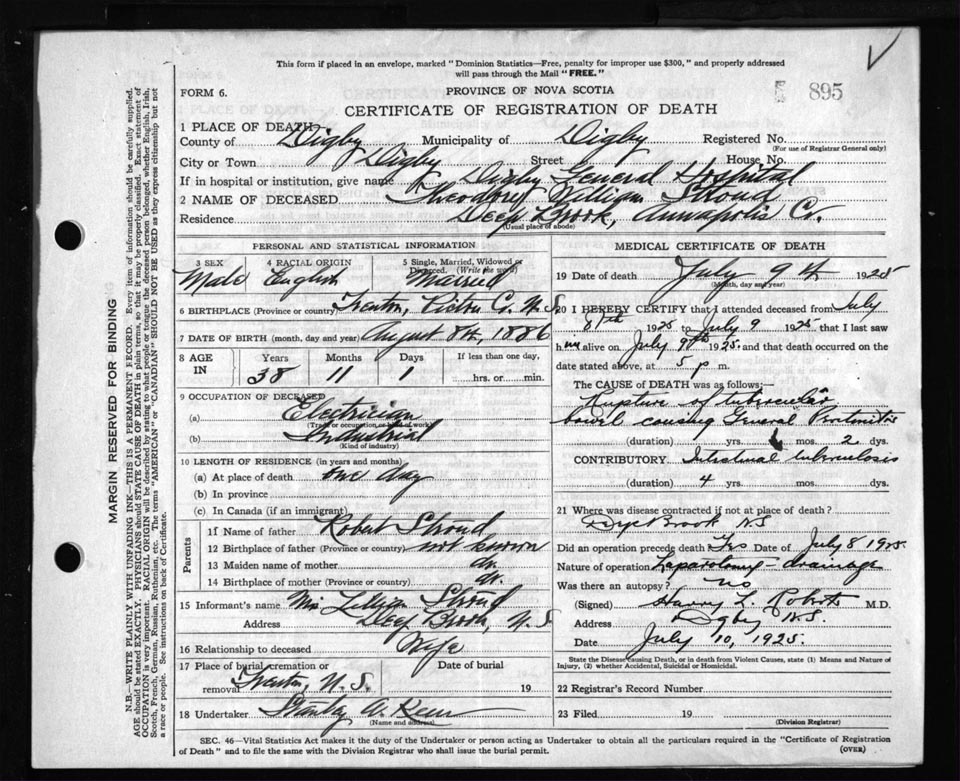 This form if placed in an envelope, marked "Dominion Statistics—Free, penalty for improper use $300," and properly addressed
will pass through the Mail "FREE."
FORM 6.
PROVINCE OF NOVA SCOTIA
895
CERTIFICATE OF REGISTRATION OF DEATH
1 PLACE OF DEATH
County of Digby Municipality of Digby Registered No.
(For use of Registrar General only)
City or Town Digby Street House No.
If in hospital or institution, give name Digby General Hospital
2 NAME OF DECEASED Theodore William Stroud
Residence Deep Brook, Annapolis Co.
(Usual place of abode)
PERSONAL AND STATISTICAL INFORMATION
3 SEX 4 RACIAL ORIGIN 5 Single, Married, Widowed or Divorced. (Write the word)
Male English Married
6 BIRTHPLACE (Province or country) Trenton, Pictou Co. N.S.
7 DATE OF BIRTH (month, day and year) August 8th, 1886
8 AGE IN Years Months Days If less than one day,
38 11 1 hrs. or min.
9 OCCUPATION OF DECEASED
(a) Electrician
(Trade or occupation or kind of work)
(b) Industrial
(Kind of industry)
10 LENGTH OF RESIDENCE (in years and months)
(a) At place of death one day
(b) In province
(c) In Canada (if an immigrant)
Parents
11 Name of father Robert Stroud
12 Birthplace of father (Province or country) not known
13 Maiden name of mother do.
14 Birthplace of mother (Province or country) do.
15 Informant's name Mrs Lillian Stroud
Address Deep Brook, N.S.
16 Relationship to deceased Wife
17 Place of burial, cremation or removal Trenton, N.S. Date of burial 19
18 Undertaker Stanley
(Name and address)
MEDICAL CERTIFICATE OF DEATH
19 Date of death July 9th 1925
(Month, day and year)
20 I HEREBY CERTIFY that I attended deceased from July
8th 1925 to July 9 1925 that I last saw
him alive on July 9th 1925. and that death occurred on the
date stated above, at 5 p m.
The CAUSE of DEATH was as follows:—
Rupture of tubercular
bowel causing General Peritonitis
(duration) yrs. mos. 2 dys.
CONTRIBUTORY Intestinal tuberculosis
(duration) 4 yrs. mos. dys.
21 Where was disease contracted if not at place of death?
Brook NS
Did an operation precede death Yes Date of July 8 1925.
Nature of operation Laparotomy - drainage
Was there an autopsy? no
(Signed) Harry L. Roberts M.D.
Address Digby N.S.
Date July 10, 1925.
State the Disease causing Death, or in death from Violent Causes, state (1) Means and Nature of
Injury, (2) whether Accidental, Suicidal or Homicidal.
22 Registrar's Record Number
23 Filed 19
(Division Registrar)
SEC. 46—Vital Statistics Act makes it the duty of the Undertaker or person acting as Undertaker to obtain all the particulars required in the "Certificate of Registration
of Death" and to file the same with the Division Registrar who shall issue the burial permit.
(OVER)
MARGIN RESERVED FOR BINDING
N.B.—WRITE PLAINLY WITH UNFADING INK—THIS IS A PERMANENT RECORD. Every item of information should be carefully supplied.
AGE should be stated EXACTLY. PHYSICIANS should STATE CAUSE OF DEATH in plain terms, so that it may be properly classified. Exact statement of
OCCUPATION is very important. RACIAL ORIGIN will be described by stating to what people or tongue the deceased person belonged, whether English, Irish,
Scotch, French, German, Russian, Ruthenian, etc. The terms "AMERICAN" or "CANADIAN" SHOULD NOT BE USED as they express citizenship but not
a race or people. See instructions on back of Certificate.